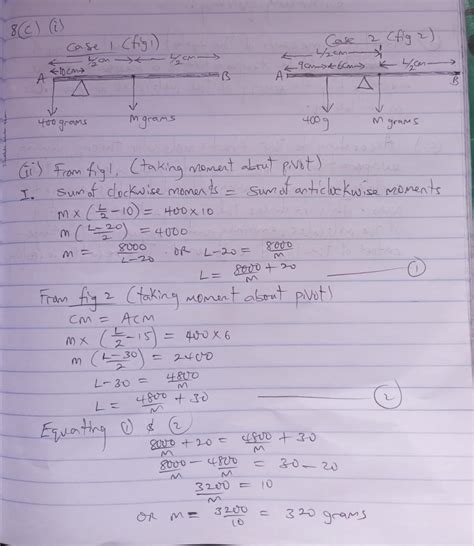 8(c) (i)
Case 1 (fig 1)
Case 2 (fig 2)
L/2cm
10cm L/2cm L/2cm
9cm 6cm L/2cm
A B
A B
400grams M grams
400g M grams
(ii) From fig1, (taking moment about pivot)
I. Sum of clockwise moments = Sum of anticlockwise moments
m × (L/2 − 10) = 400 × 10
m (L−20/2) = 4000
m = 8000/L−20 OR L−20 = 8000/M
L = 8000/M + 20 ①
From fig 2 (taking moment about pivot)
CM = ACM
m × (L/2 − 15) = 400 × 6
m (L−30/2) = 2400
L−30 = 4800/M
L = 4800/M + 30 ②
Equating ① & ②
8000/M + 20 = 4800/M + 30
8000/M − 4800/M = 30 − 20
3200/M = 10
OR M = 3200/10 = 320 grams